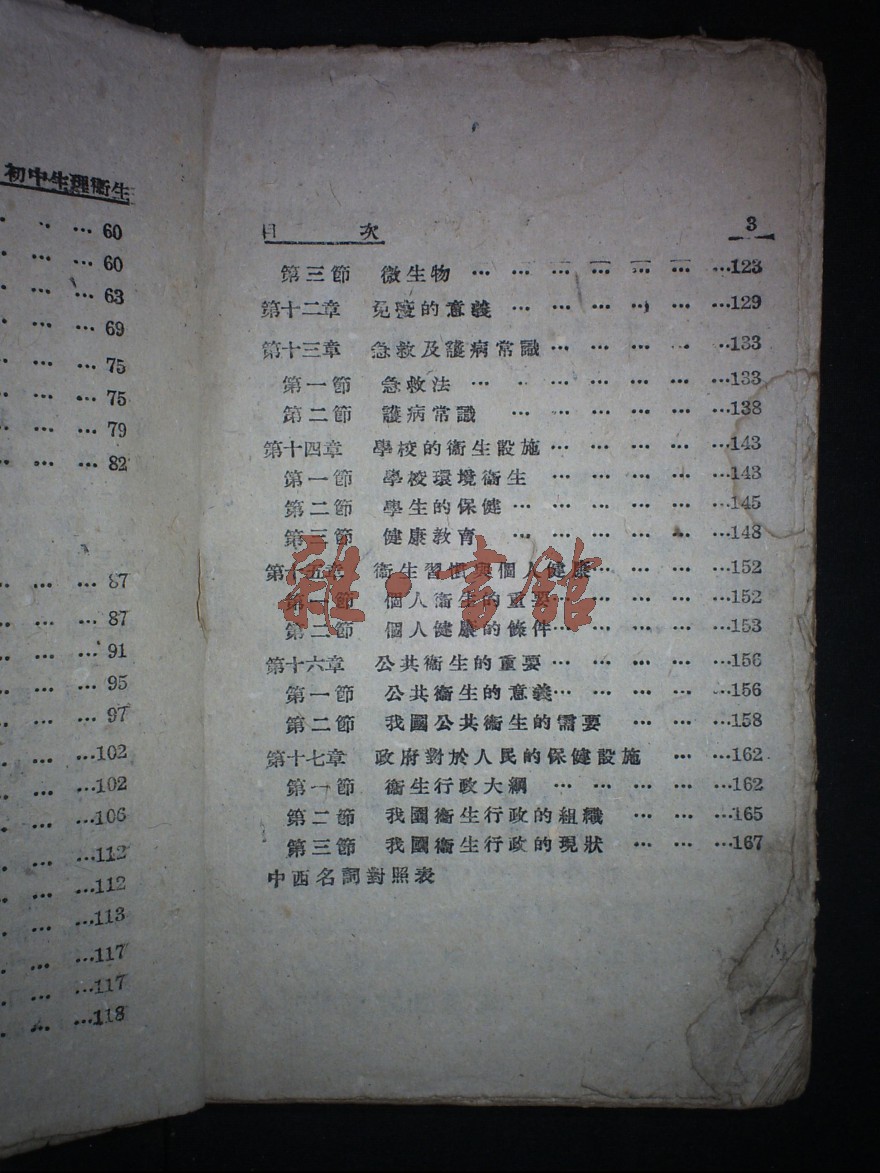 初中生理衞生
… 60
… 60
… 63
… 69
… 75
… 75
… 79
… 82
… 87
… 87
… 91
… 95
… 97
…102
…102
…106
…112
…112
…113
…117
…117
…118
目 次 3
第三節 微生物 … … … … … … …123
第十二章 免疫的意義 … … … … … …129
第十三章 急救及護病常識 … … … … …133
第一節 急救法 … … … … … … …133
第二節 護病常識 … … … … … …138
第十四章 學校的衞生設施 … … … … …143
第一節 學校環境衞生 … … … … …143
第二節 學生的保健 … … … … … …145
第三節 健康教育 … … … … … …148
第十五章 衞生習慣與個人健康… … … …152
第一節 個人衞生的重要… … … … …152
第二節 個人健康的條件… … … … …153
第十六章 公共衞生的重要 … … … … …156
第一節 公共衞生的意義… … … … …156
第二節 我國公共衞生的需要 … … …158
第十七章 政府對於人民的保健設施 … …162
第一節 衞生行政大綱 … … … … …162
第二節 我國衞生行政的組織 … … …165
第三節 我國衞生行政的現狀 … … …167
中西名詞對照表
雜·書館